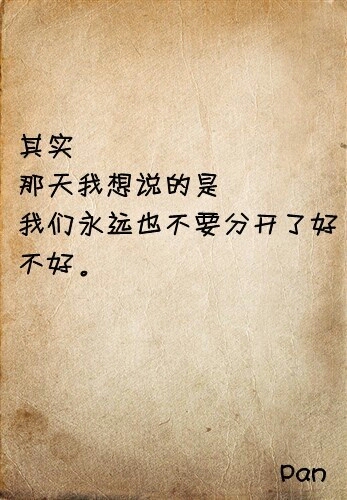 其实
那天我想说的是
我们永远也不要分开了好
不好。
Pan